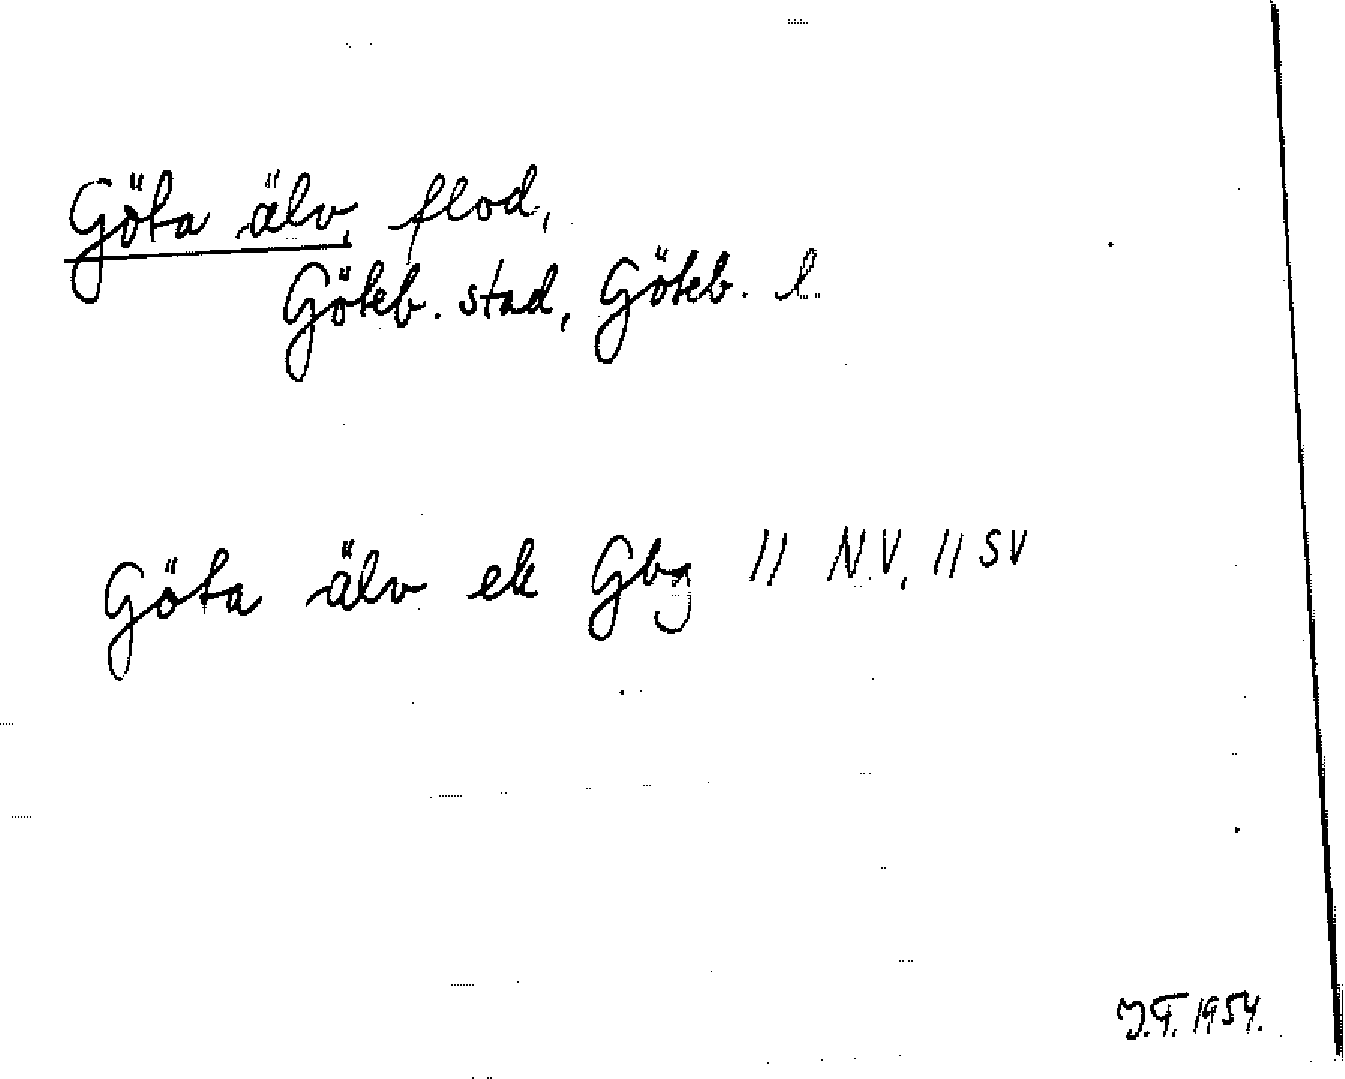 Göta älv, flod,
Göteb. stad, Göteb. l.
Göta älv ek Gbg 11 N.V, 11 SV
J.T. 1954.